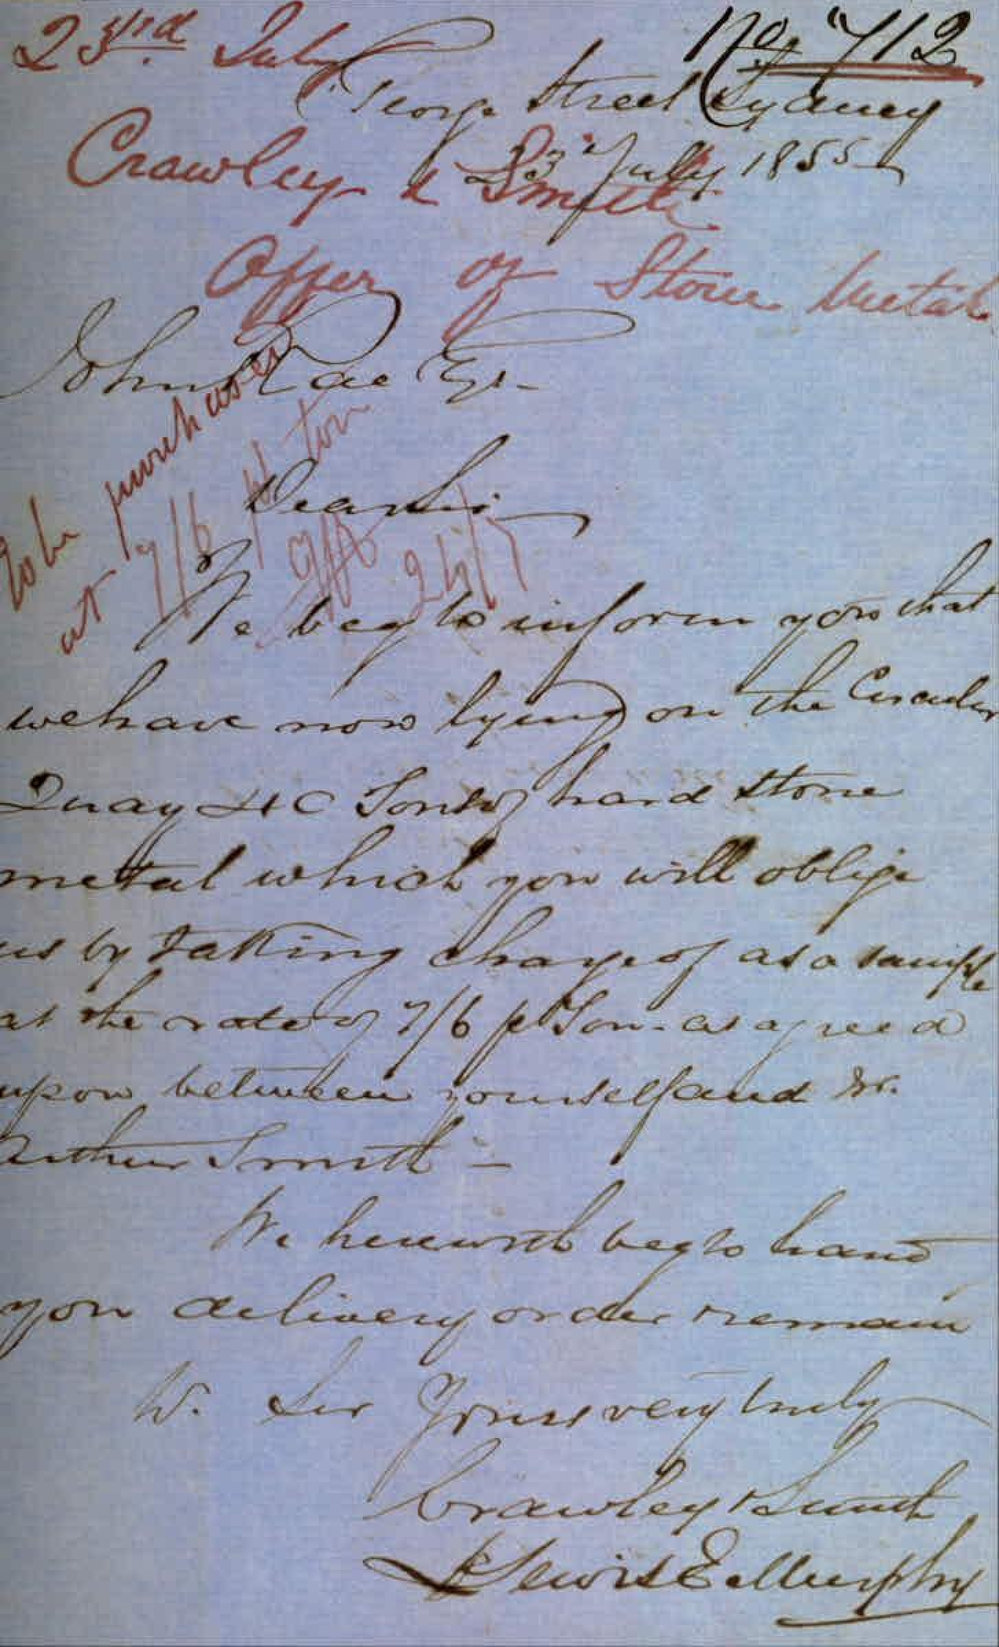 23rd July
No. 712
George Street Sydney
23rd July 1855
Crawley & Smith
Offer of Stone Metal
John Rae Esr.
To be purchased
at 7/6 pr ton
24/7
Dear Sir
We beg to inform you that
we have now lying on the Circular
Quay 40 Tons of hard stone
metal which you will oblige
us by taking charge of as a sample
at the rate of 7/6 pr Ton. as agreed
upon between yourself and Mr.
Arthur Smith –
We herewith beg to hand
you delivery order & remain
Dr. Sir Yours very truly
Crawley & Smith
Lewis E. Murphy